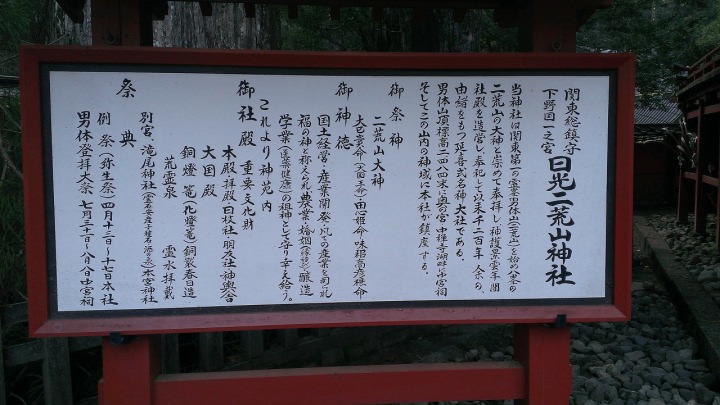 関東総鎮守
下野国一之宮
日光二荒山神社
当神社は関東第一の霊峯男体山(二荒山)を始め八峯の
二荒山の大神と崇めて奉拝し、神護景雲年間
社殿を造営し奉祀して以来千二百年余の、
由緒をもつ延喜式名神大社である。
男体山頂標高二四八四米に奥の宮中禅寺湖畔に中宮祠
そしてこの山内の神域に本社が鎮座する。
御祭神
二荒山大神
大己貴命 田心姫命 味耜高彦根命
御神徳
国土経営・産業開発・凡ての産業を司られ
福の神と称えられ農業・婚姻(縁結び)・醸造
学業(医薬健康)の祖神として守り幸え給う。
御社殿 重要文化財
本殿 拝殿 日枝社 朋友社 神輿舎
これより神苑内
大国殿
銅燈篭(化燈篭) 銅製春日造
荒霊泉 霊水拝戴
別宮 滝尾神社 本宮神社
祭典
例祭(弥生祭)四月十三日〜十七日本社
男体登拝大祭 七月三十一日〜八月八日中宮祠